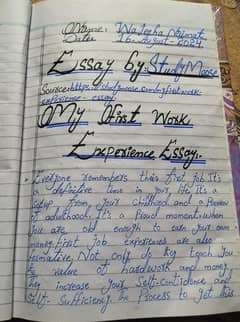 Name: Waleeha Naimat
Date: 16-August-2024
Essay by: StudyMoose
Source: https://studymoose.com/my-first-work-
experience-essay
My First Work
Experience Essay.
Everyone remembers their first job. It's
a definitive time in your life. It's a
step up from your childhood and a Preview
of adulthood. It's a Proud moment when
you are old enough to earn your own
money. First Job experiences are also
formative. Not only do they teach you
the value of hardwork and money
they increase your Self-Confidence and
Self-Sufficiency. The Process to get this